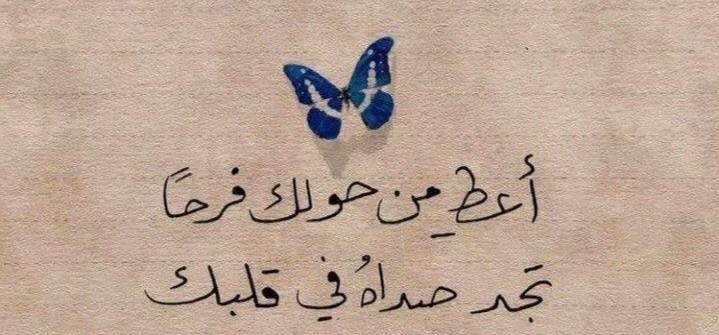 أعطِ من حولك فرحًا
تجد صداهُ في قلبك